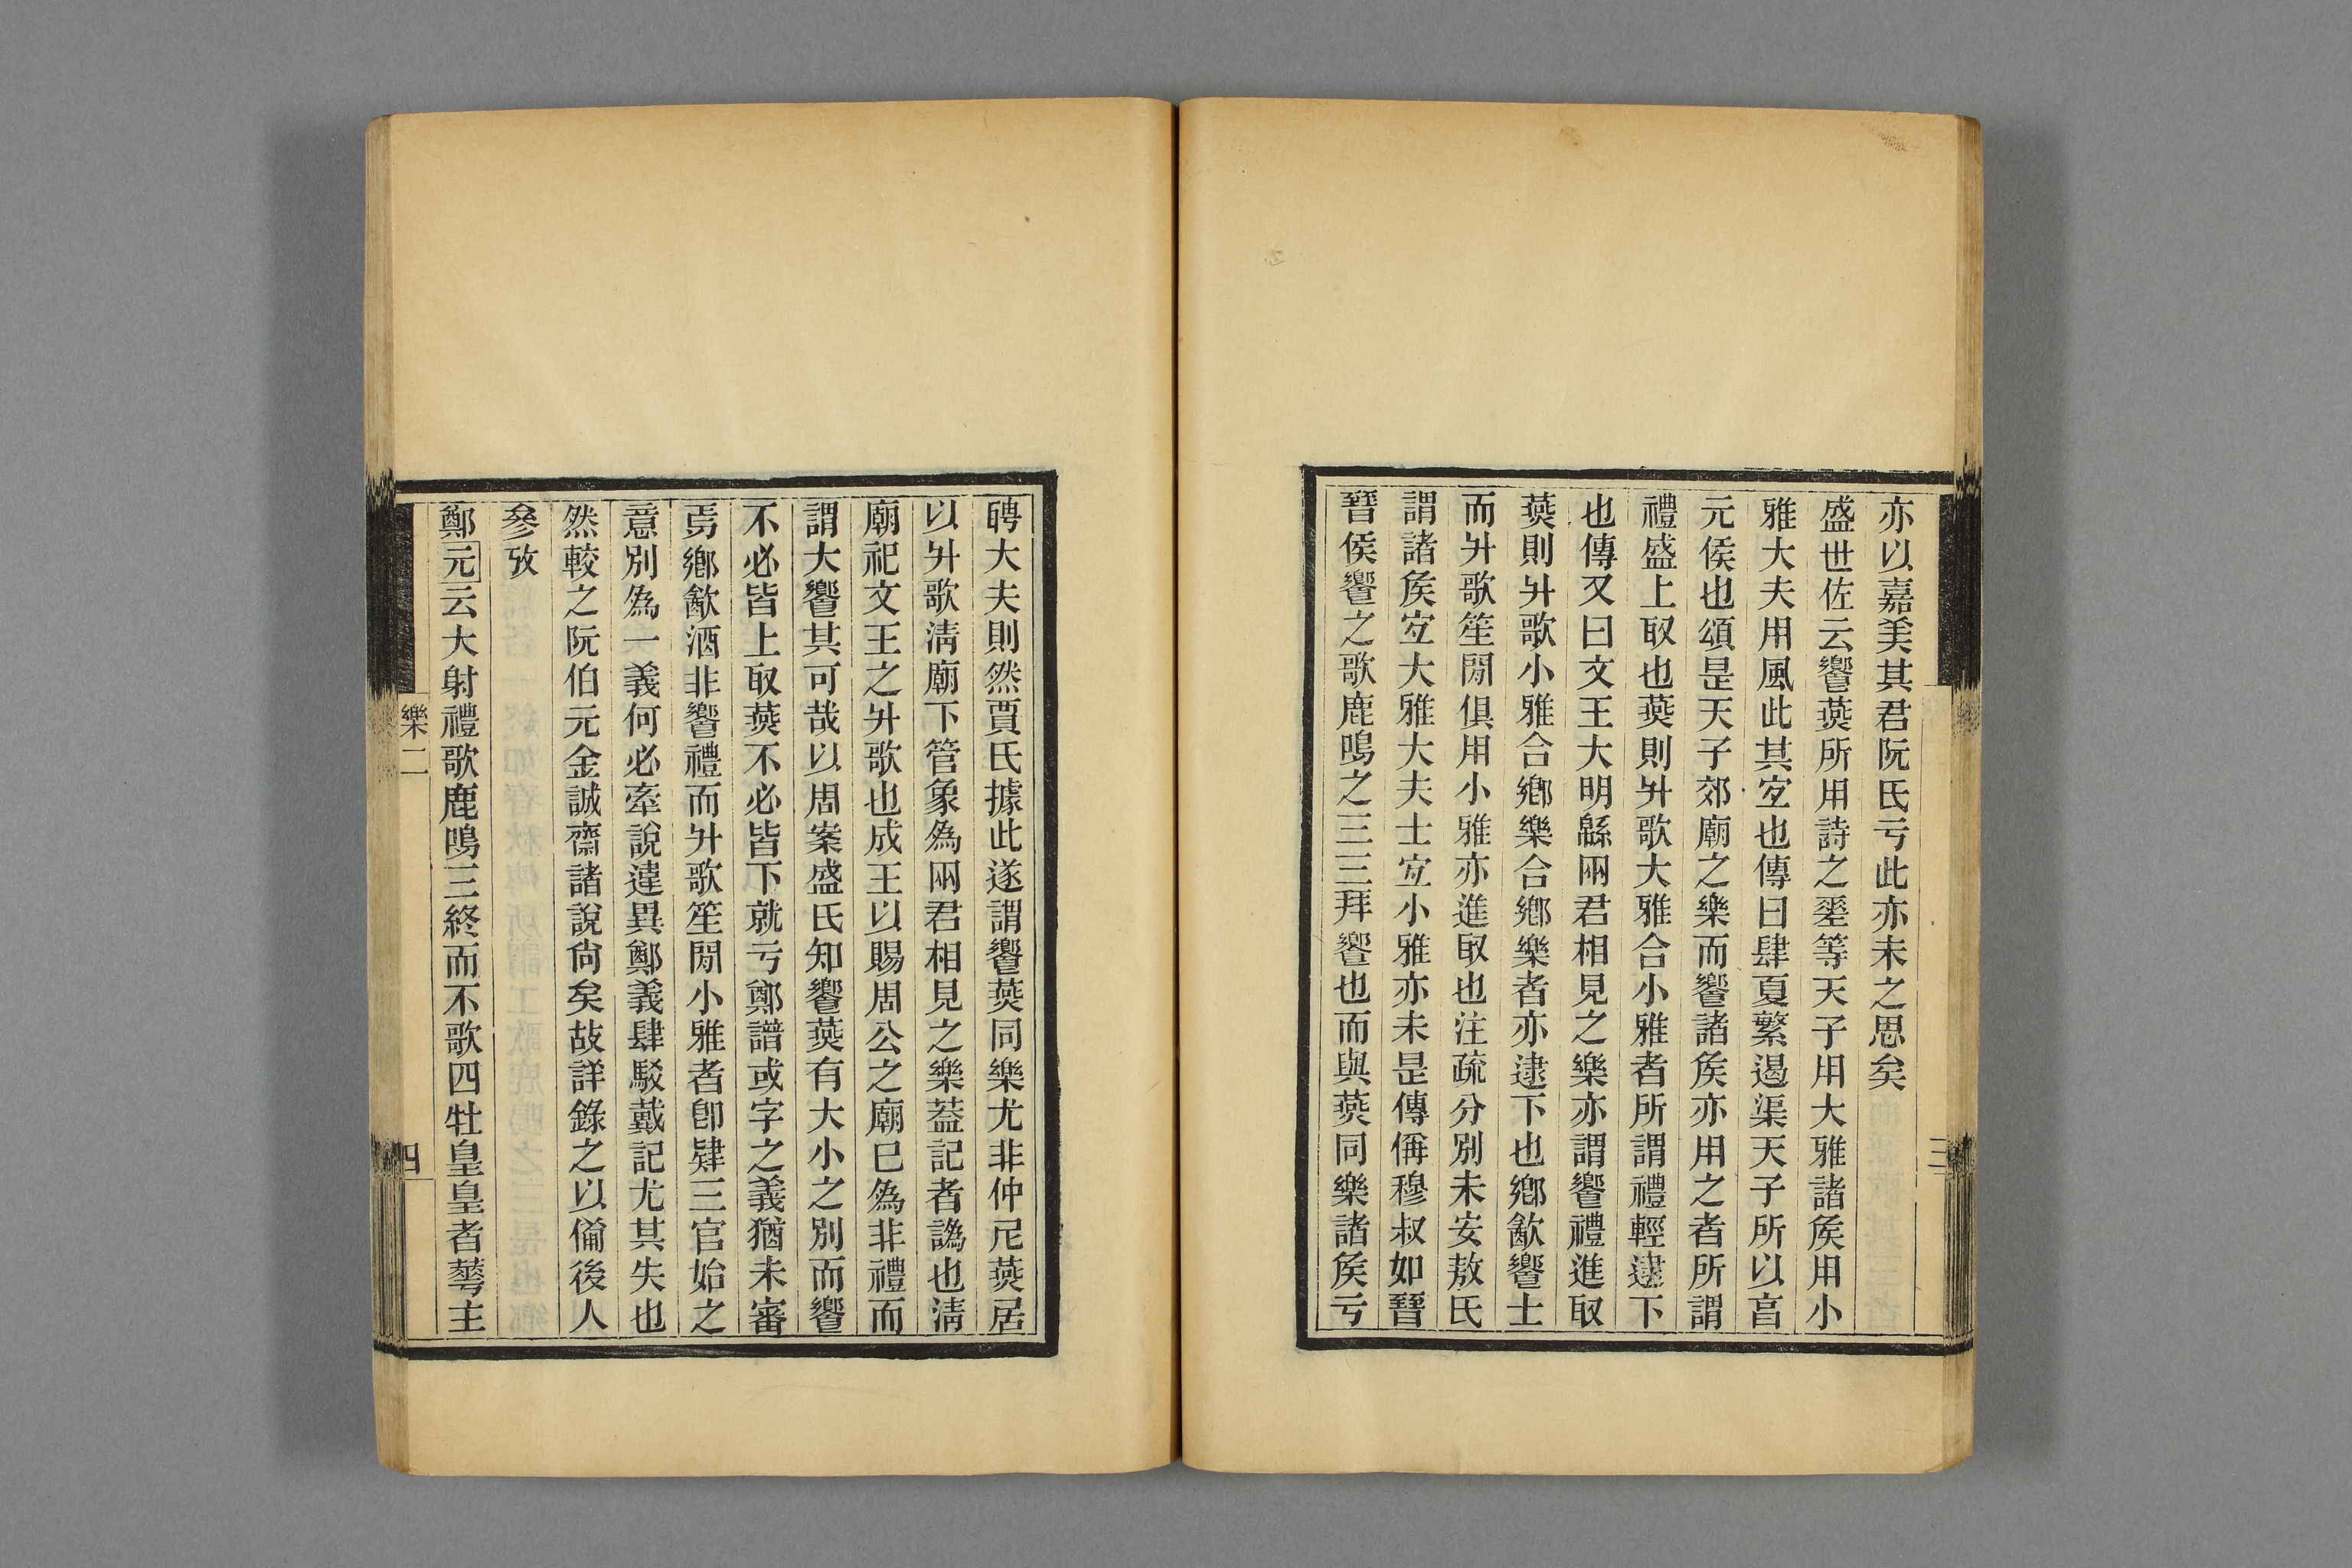 亦以嘉美其君阮氏亏此亦未之思矣
盛世佐云饗燕所用詩之𢀩等天子用大雅諸矦用小
雅大夫用風此其宐也傳曰肆夏繁遏渠天子所以亯
元侯也頌是天子郊廟之樂而饗諸矦亦用之者所謂
禮盛上取也燕則升歌大雅合小雅者所謂禮輕逮下
也傳又曰文王大明緜兩君相見之樂亦謂饗禮進取
燕則升歌小雅合鄉樂合鄉樂者亦逮下也鄉飲饗士
而升歌笙閒俱用小雅亦進取也注疏分別未安敖氏
謂諸矦宐大雅大夫士宐小雅亦未是傳偁穆叔如晉
晉侯饗之歌鹿鳴之三三拜饗也而與燕同樂諸矦亏
三
聘大夫則然賈氏據此遂謂饗燕同樂尤非仲尼燕居
以升歌淸廟下管象爲兩君相見之樂葢記者譌也淸
廟祀文王之升歌也成王以賜周公之廟巳爲非禮而
謂大饗其可哉以周案盛氏知饗燕有大小之別而饗
不必皆上取燕不必皆下就亏鄭譜或字之義猶未審
焉鄉飲酒非饗禮而升歌笙閒小雅者卽肄三官始之
意別爲一義何必牽說違異鄭義肆駁戴記尤其失也
然較之阮伯元金誠齋諸說尙矣故詳錄之以備後人
參攷
鄭元云大射禮歌鹿鳴三終而不歌四牡皇皇者蕐主
樂二
四